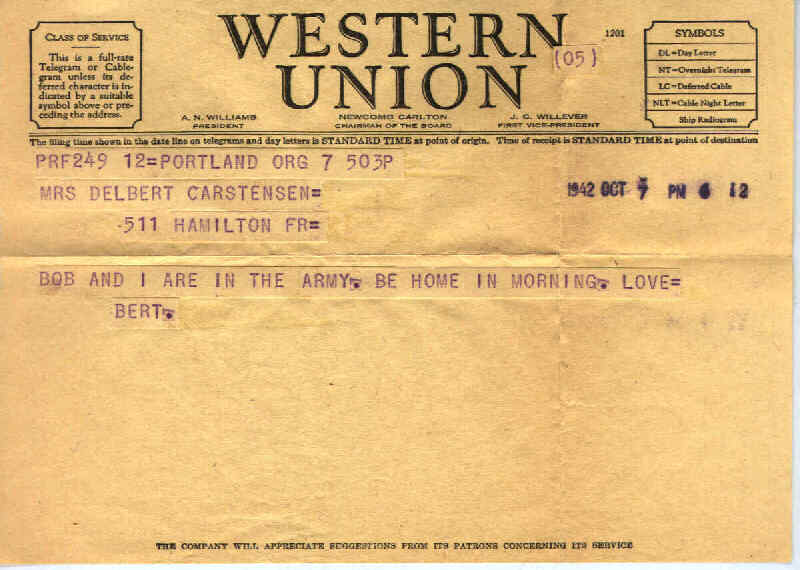 CLASS OF SERVICE
This is a full-rate
Telegram or Cable-
gram unless its de-
ferred character is in-
dicated by a suitable
symbol above or pre-
ceding the address.
WESTERN
UNION
1201
(05)
A. N. WILLIAMS
PRESIDENT
NEWCOMB CARLTON
CHAIRMAN OF THE BOARD
J. C. WILLEVER
FIRST VICE-PRESIDENT
SYMBOLS
DL=Day Letter
NT=Overnight Telegram
LC=Deferred Cable
NLT=Cable Night Letter
Ship Radiogram
The filing time shown in the date line on telegrams and day letters is STANDARD TIME at point of origin. Time of receipt is STANDARD TIME at point of destination
PRF249 12=PORTLAND ORG 7 503P
MRS DELBERT CARSTENSEN=
1942 OCT 7 PM 6 12
511 HAMILTON FR=
BOB AND I ARE IN THE ARMY. BE HOME IN MORNING. LOVE=
BERT.
THE COMPANY WILL APPRECIATE SUGGESTIONS FROM ITS PATRONS CONCERNING ITS SERVICE